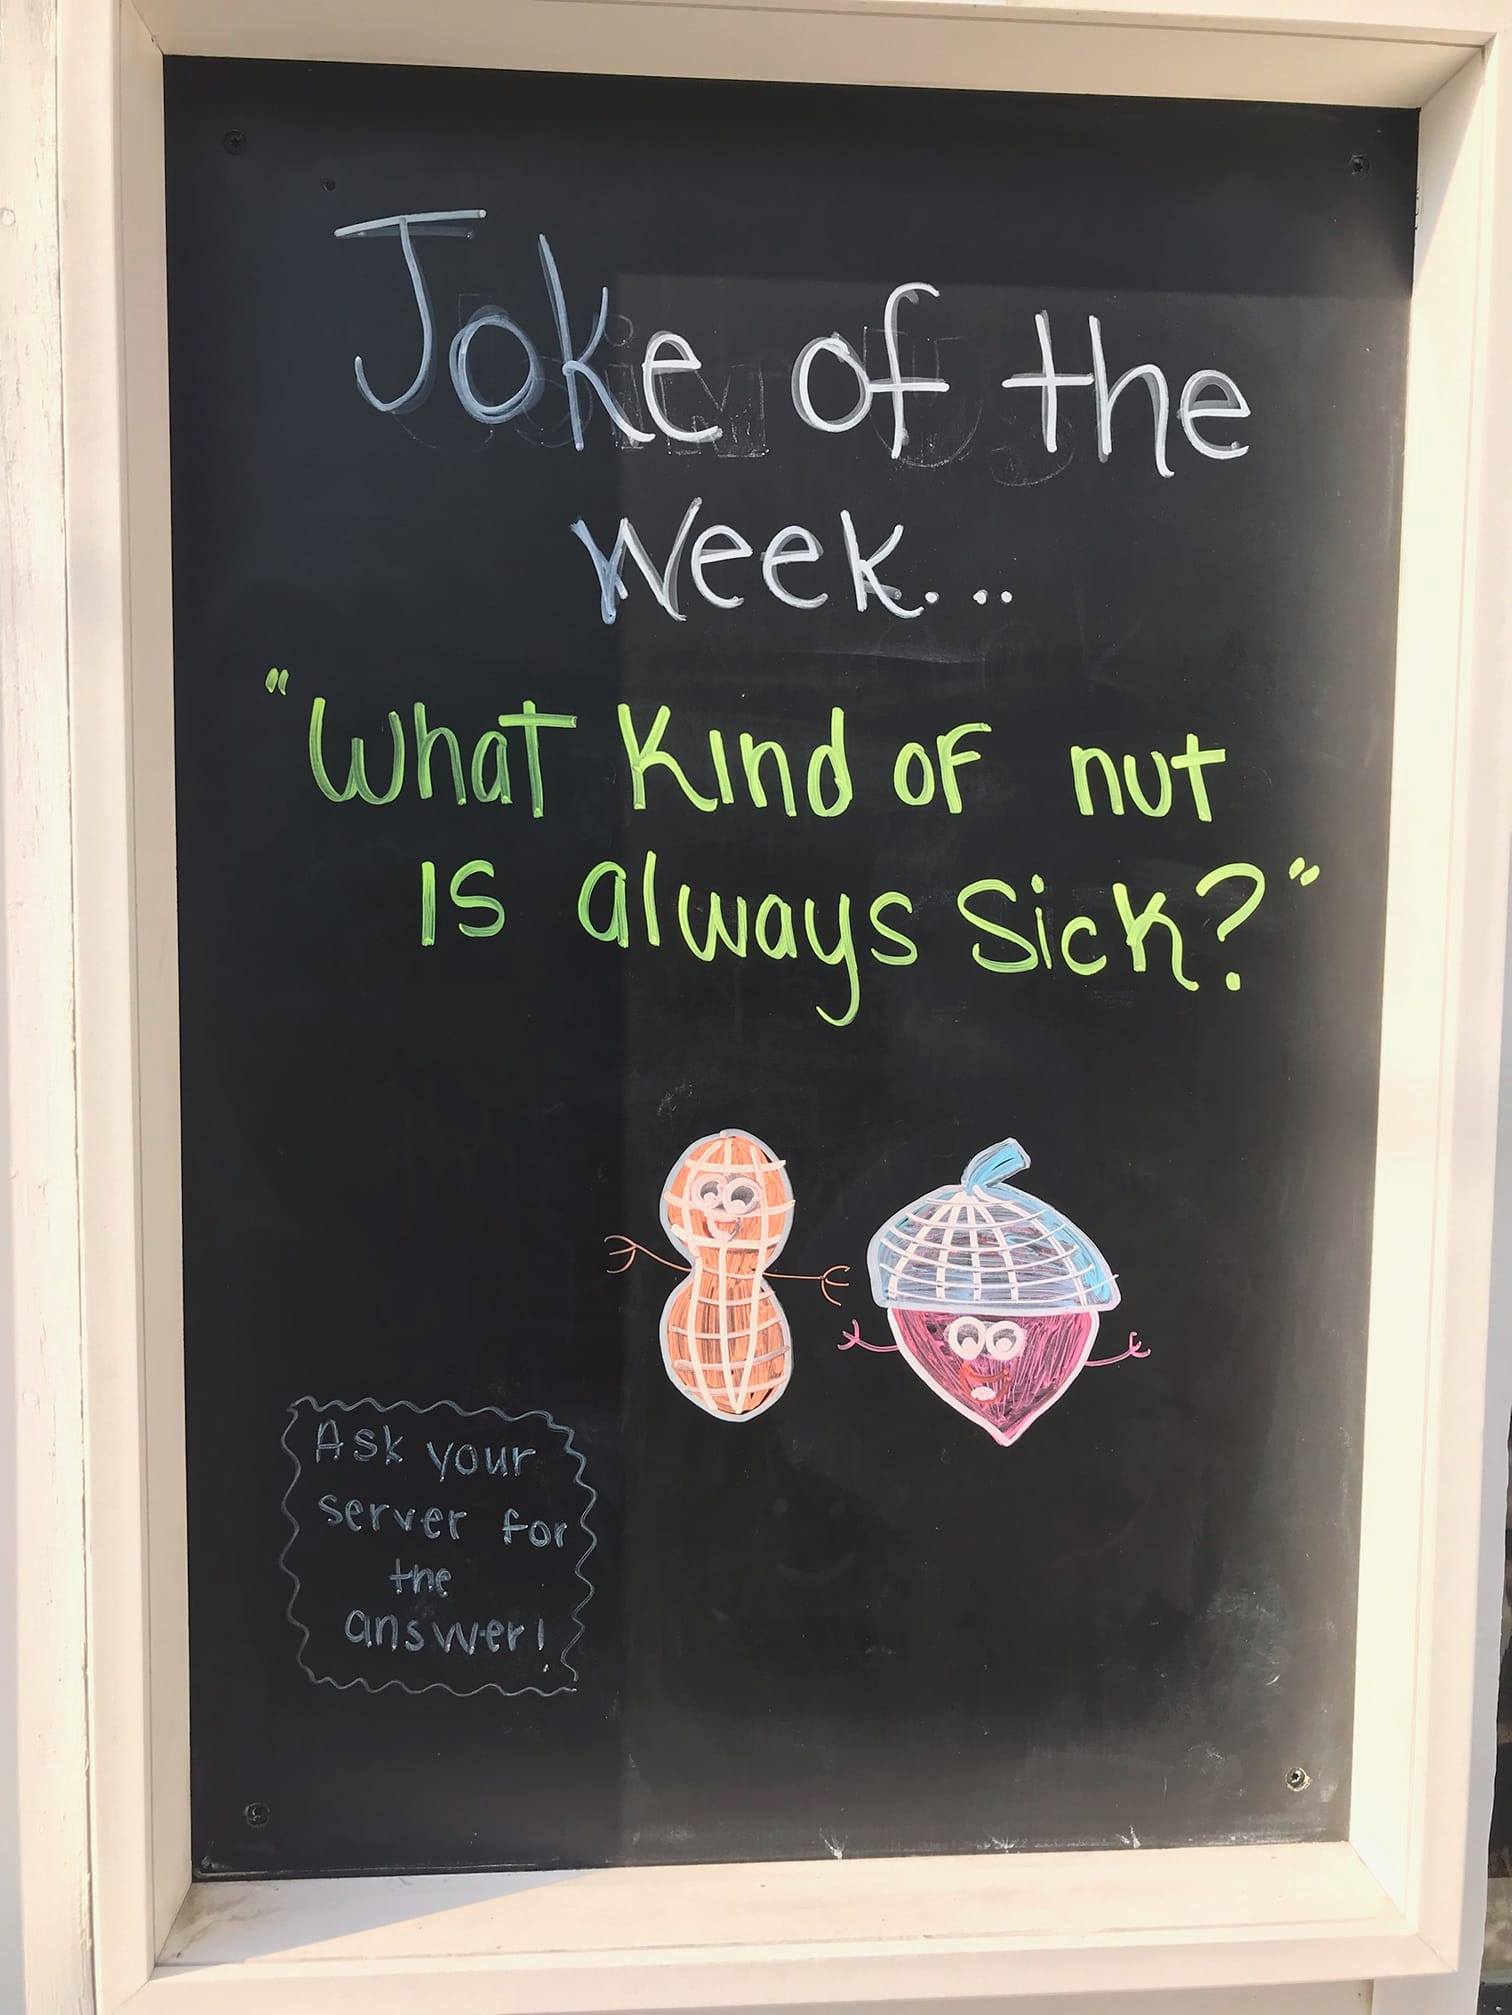 Joke of the
Week...
"What Kind of nut
is always Sick?"
Ask your
server for
the
answer!